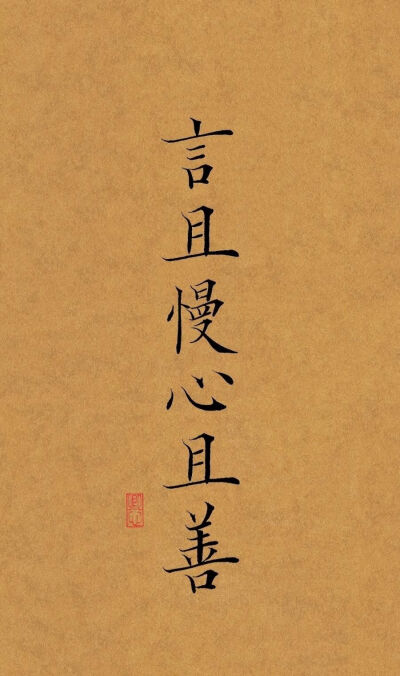 言且慢心且善